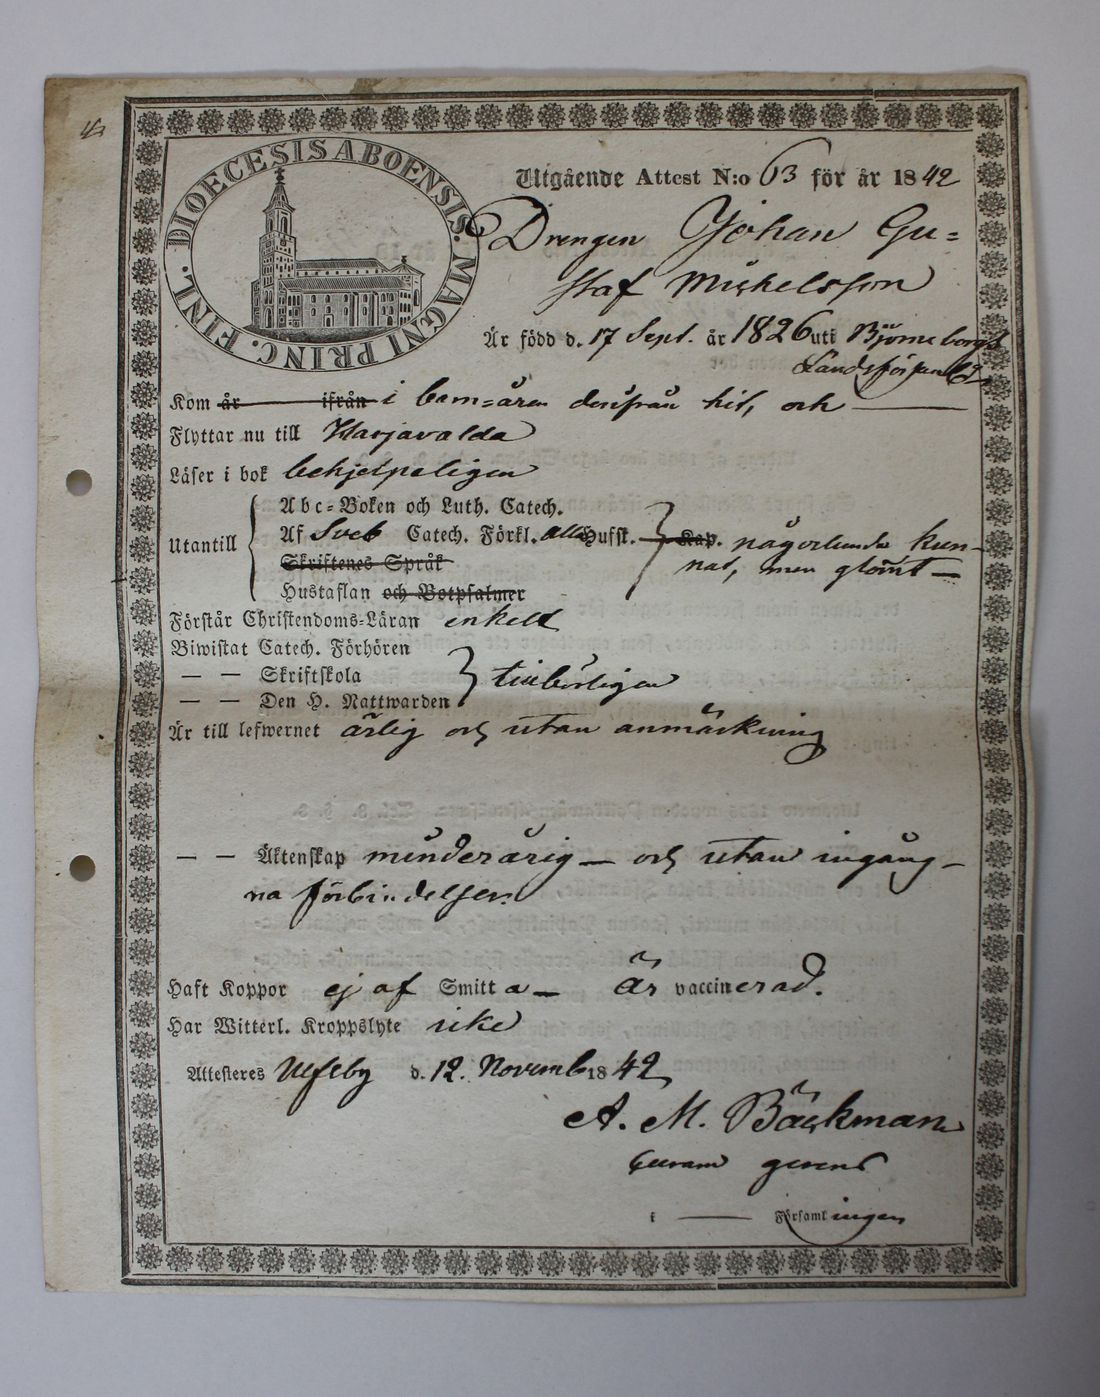 DIOECESIS ABOENSIS. MAGNI PRINC. FINL.
Utgående Attest N:o 63 för år 1842
Drengen Johan Gu=
staf Michelsson
Är född d. 17 Sept. år 1826 uti Björneborgs
Landsförsamlg
Kom år ifrån i barn=åren derifrån hit, och
Flyttar nu till Harjavalda
Läser i bok behjelpeligen
Utantill
Abc=Boken och Luth. Catech.
Af Sveb Catech. Förkl. alla Hufst. Kap. någorlunda kun-
Skriftenes Språk nat, men glömt
Hustaflan och Botpsalmer
Förstår Christendoms=Läran enkelt
Biwistat Catech. Förhören
— — Skriftskola tillbörligen
— — Den H. Nattwarden
Är till lefwernet ärlig och utan anmärkning
— — Äktenskap minderårig — och utan ingång-
na förbindelser.
Haft Koppor ej af Smitta — Är vaccinerad.
Har Witterl. Kroppslyte icke
Attesteres Ulfsby d. 12. Novemb 1842
A. M. Bäckman
curam gerens
i — Församlingen